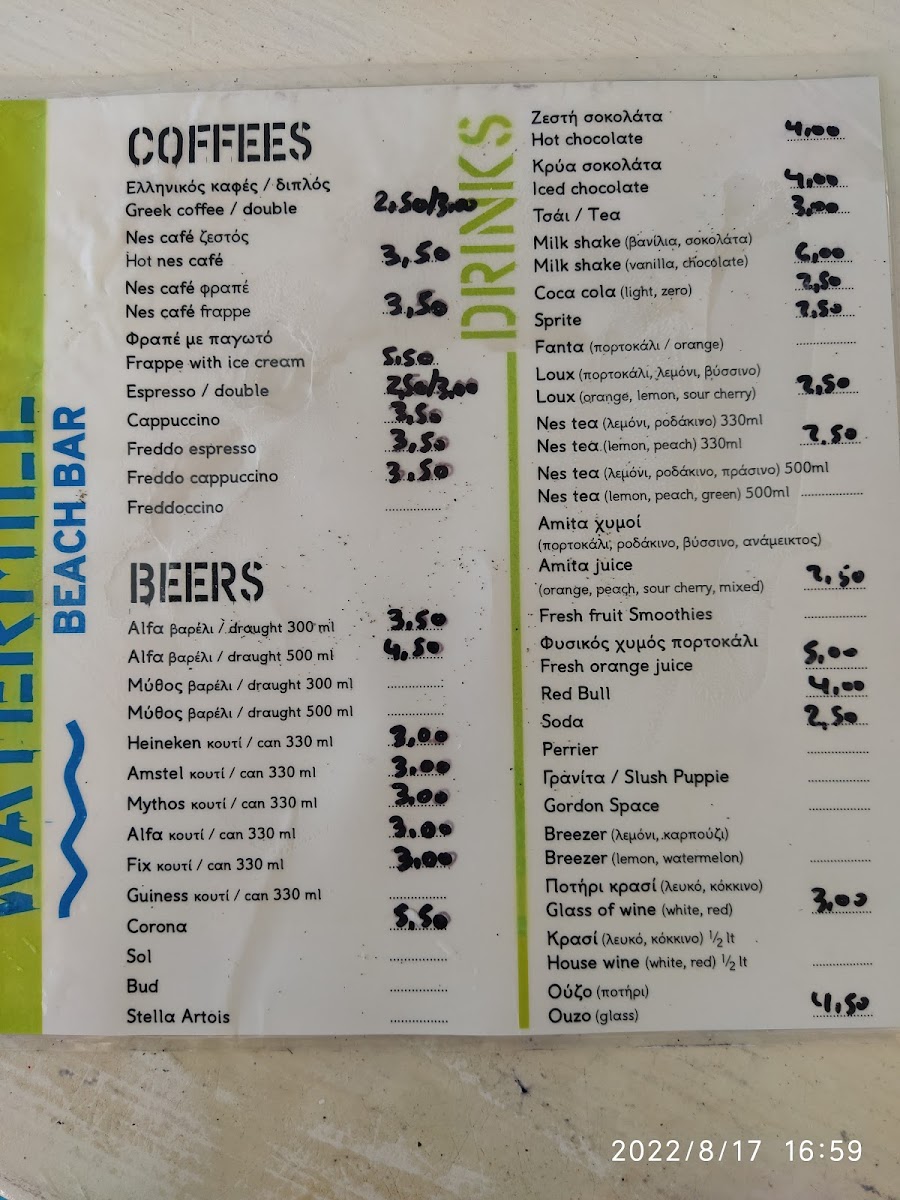 WATERMILL
BEACH BAR
COFFEES
Ελληνικός καφές / διπλός
Greek coffee / double 2,50/3,00
Nes café ζεστός
Hot nes café 3,50
Nes café φραπέ
Nes café frappe 3,50
Φραπέ με παγωτό
Frappe with ice cream 5,50
Espresso / double 2,50/3,00
Cappuccino 3,50
Freddo espresso 3,50
Freddo cappuccino 3,50
Freddoccino
BEERS
Alfa βαρέλι / draught 300 ml 3,50
Alfa βαρέλι / draught 500 ml 4,50
Μύθος βαρέλι / draught 300 ml
Μύθος βαρέλι / draught 500 ml
Heineken κουτί / can 330 ml 3,00
Amstel κουτί / can 330 ml 3,00
Mythos κουτί / can 330 ml 3,00
Alfa κουτί / can 330 ml 3,00
Fix κουτί / can 330 ml 3,00
Guiness κουτί / can 330 ml
Corona 5,50
Sol
Bud
Stella Artois
DRINKS
Ζεστή σοκολάτα
Hot chocolate 4,00
Κρύα σοκολάτα
Iced chocolate 4,00
Τσάι / Tea 3,00
Milk shake (βανίλια, σοκολάτα)
Milk shake (vanilla, chocolate) 6,00
Coca cola (light, zero) 2,50
Sprite 2,50
Fanta (πορτοκάλι / orange)
Loux (πορτοκάλι, λεμόνι, βύσσινο)
Loux (orange, lemon, sour cherry) 2,50
Nes tea (λεμόνι, ροδάκινο) 330ml
Nes tea (lemon, peach) 330ml 2,50
Nes tea (λεμόνι, ροδάκινο, πράσινο) 500ml
Nes tea (lemon, peach, green) 500ml
Amita χυμοί
(πορτοκάλι, ροδάκινο, βύσσινο, ανάμεικτος)
Amita juice
(orange, peach, sour cherry, mixed) 2,50
Fresh fruit Smoothies
Φυσικός χυμός πορτοκάλι
Fresh orange juice 5,00
Red Bull 4,00
Soda 2,50
Perrier
Γρανίτα / Slush Puppie
Gordon Space
Breezer (λεμόνι, καρπούζι)
Breezer (lemon, watermelon)
Ποτήρι κρασί (λευκό, κόκκινο)
Glass of wine (white, red) 3,00
Κρασί (λευκό, κόκκινο) ½ lt
House wine (white, red) ½ lt
Ούζο (ποτήρι)
Ouzo (glass) 4,50
2022/8/17 16:59